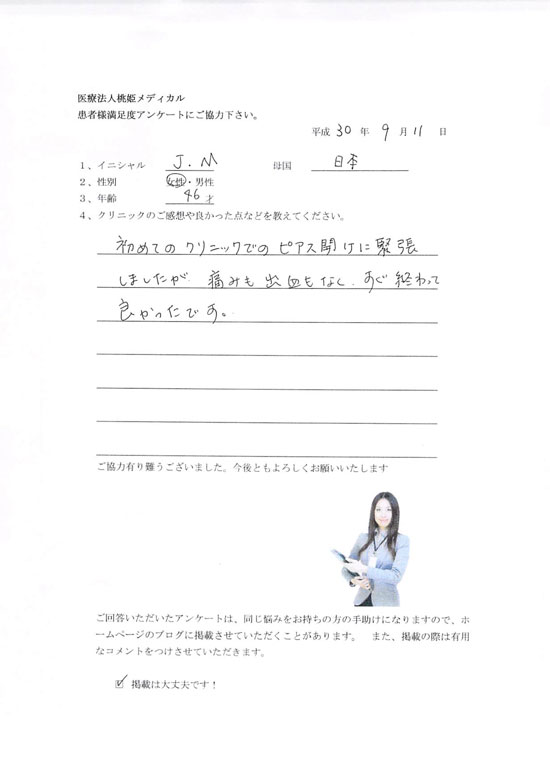 医療法人桃姫メディカル
患者様満足度アンケートにご協力下さい。
平成 30 年 9 月 11 日
1、イニシャル J.M 母国 日本
2、性別 女性・男性
3、年齢 46 才
4、クリニックのご感想や良かった点などを教えてください。
初めてのクリニックでのピアス開けに緊張
しましたが、痛みも出血もなく、すぐ終わって
良かったです。
ご協力有り難うございました。今後ともよろしくお願いいたします
ご回答いただいたアンケートは、同じ悩みをお持ちの方の手助けになりますので、ホ
ームページのブログに掲載させていただくことがあります。 また、掲載の際は有用
なコメントをつけさせていただきます。
☑ 掲載は大丈夫です！